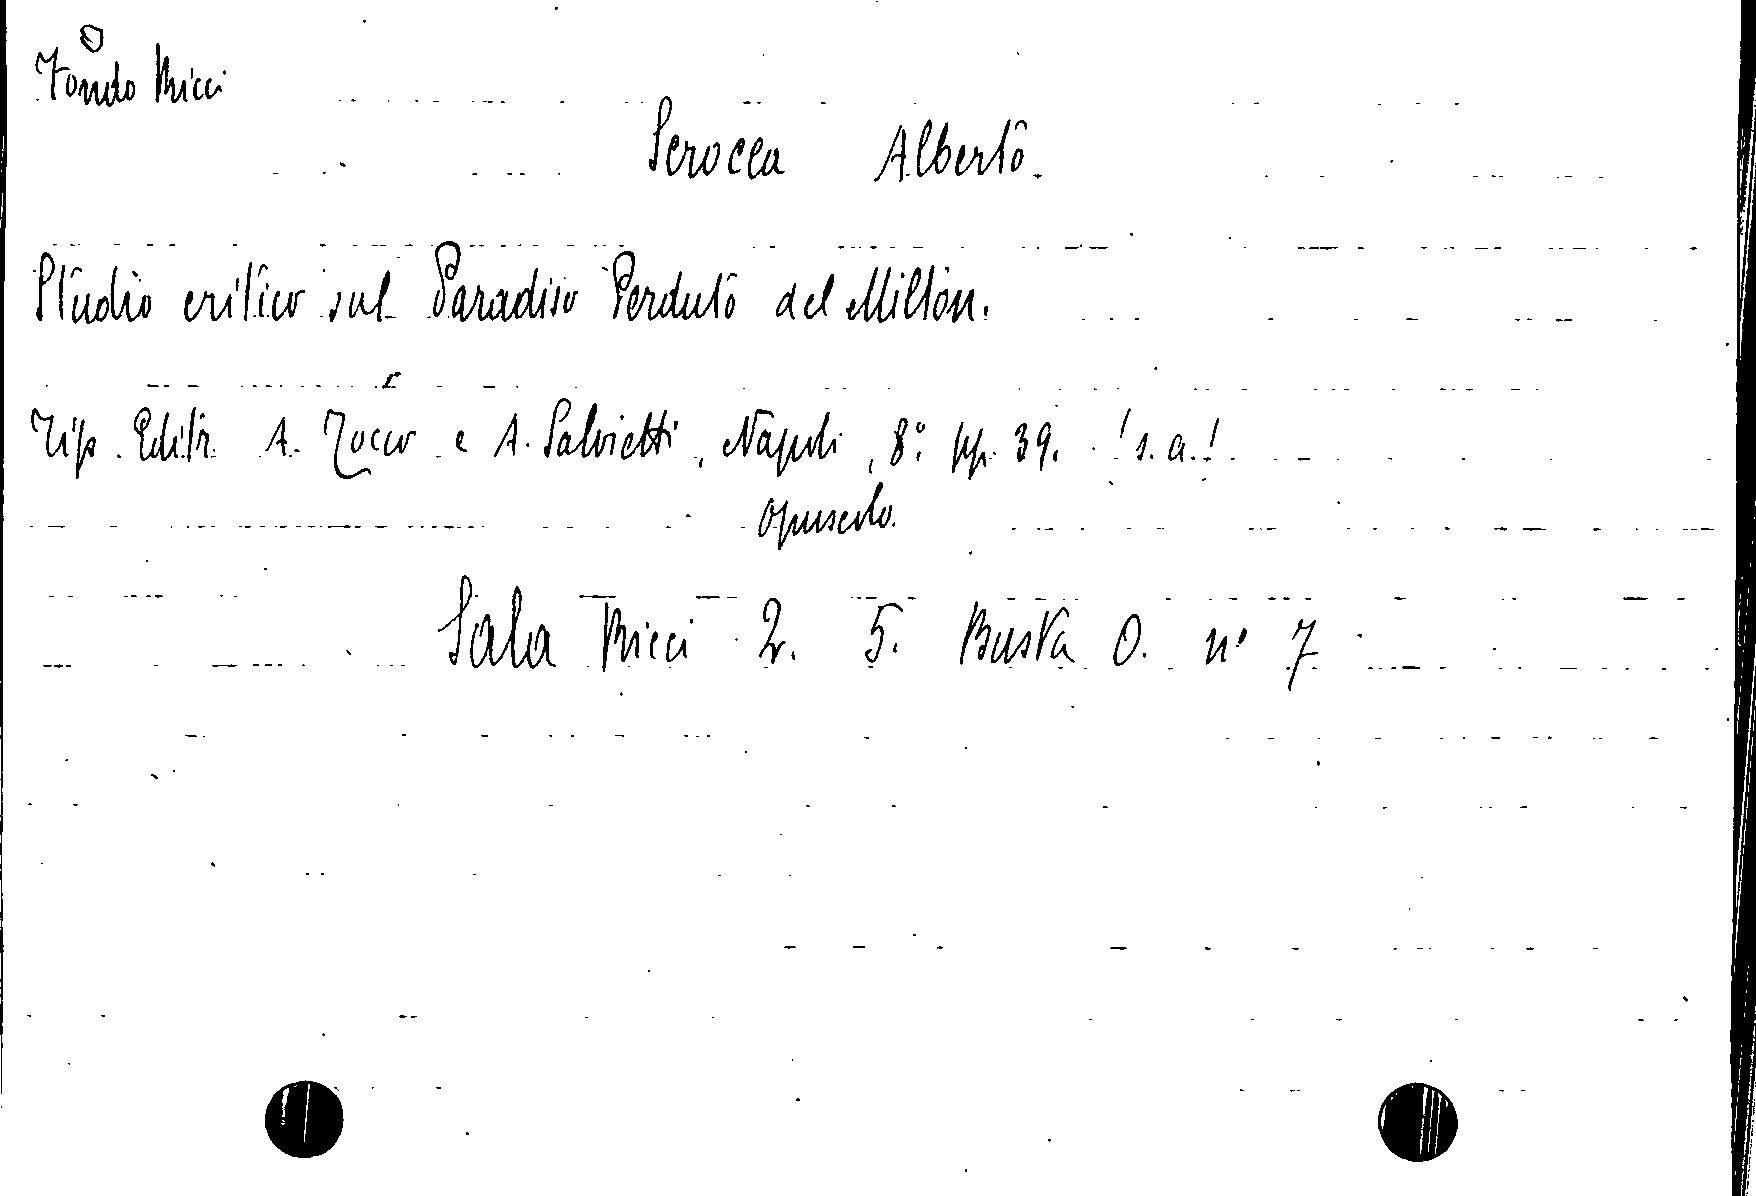 Fondo Ricci
Scrocca Alberto.
Studio critico sul Paradiso Perduto del Milton.
Tip. Editr. A. Tocco e A. Salvietti, Napoli, 8° pp. 39. ! s. a. !
opuscolo.
Sala Ricci 2. 5. Busta O. n° 7